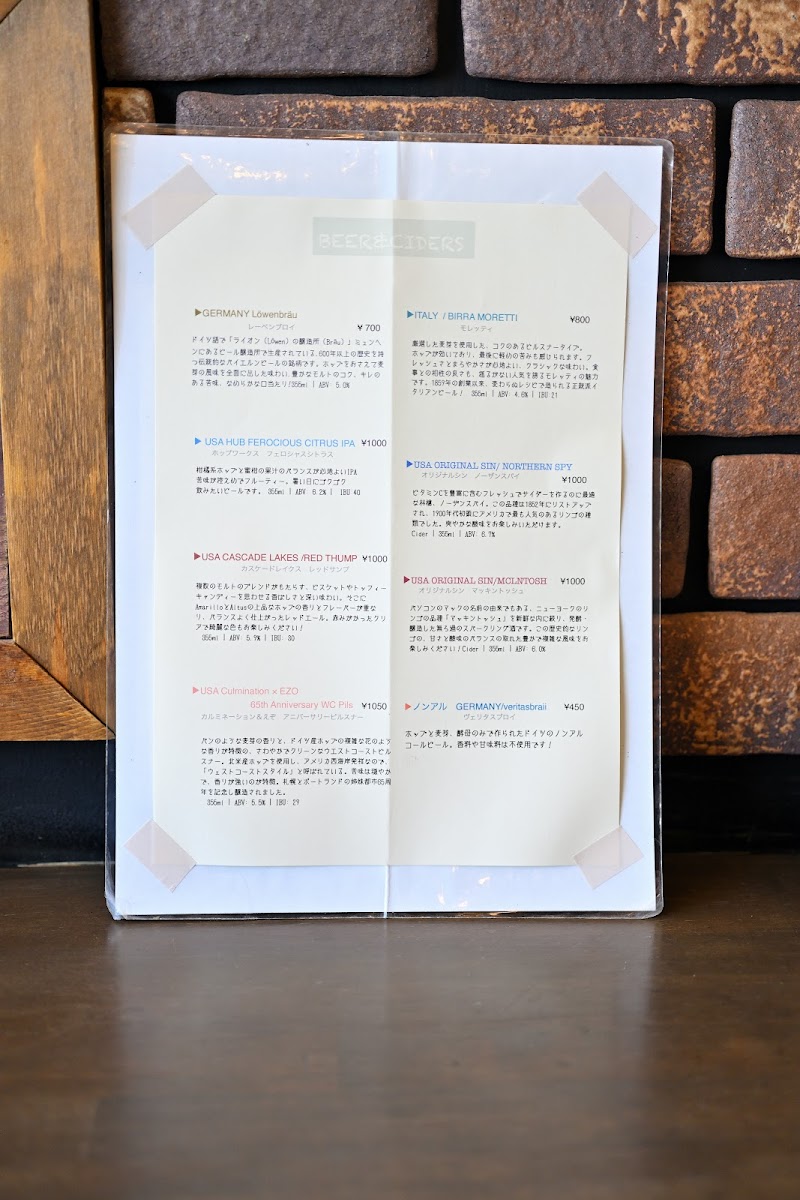 BEER&CIDERS
▶GERMANY Löwenbräu
レーベンブロイ
¥700
ドイツ語で「ライオン（Löwen）の醸造所（Bräu）」ミュンヘ
ンにあるビール醸造所で生産されている、600年以上の歴史を持
つ伝統的なバイエルンビールの銘柄です。ホップをおさえて麦
芽の風味を全面に出した味わい、豊かなモルトのコク、キレの
ある苦味、なめらかな口当たり/355ml | ABV: 5.0%
▶USA HUB FEROCIOUS CITRUS IPA ¥1000
ホップワークス フェロシャスシトラス
柑橘系ホップと蜜柑の果汁のバランスが心地よいIPA
苦味が控えめでフルーティー。暑い日にゴクゴク
飲みたいビールです。 355ml | ABV: 6.2% | IBU 40
▶USA CASCADE LAKES /RED THUMP ¥1000
カスケードレイクス レッドサンプ
複数のモルトのブレンドがもたらす、ビスケットやトッフィー
キャンディーを思わせる香ばしさと深い味わい。そこに
AmarilloとAltusの上品なホップの香りとフレーバーが重な
り、バランスよく仕上がったレッドエール。赤みがかったクリ
アで綺麗な色もお楽しみください！
355ml | ABV: 5.9% | IBU: 30
▶USA Culmination × EZO
65th Anniversary WC Pils ¥1050
カルミネーション＆えぞ アニバーサリーピルスナー
パンのような麦芽の香りと、ドイツ産ホップの複雑な花のよう
な香りが特徴の、さわやかでクリーンなウエストコーストピル
スナー。北米産ホップを使用し、アメリカ西海岸発祥なので、
「ウェストコーストスタイル」と呼ばれている。苦味は穏やか
で、香りが強いのが特徴。札幌とポートランドの姉妹都市65周
年を記念し醸造されました。
355ml | ABV: 5.5% | IBU: 29
▶ITALY / BIRRA MORETTI
¥800
モレッティ
厳選した麦芽を使用した、コクのあるピルスナータイプ。
ホップが効いており、最後に軽めの苦みも感じられます。フ
レッシュさとまろやかさが心地よい、クラシックな味わい。食
事との相性の良さも、揺るがない人気を誇るモレッティの魅力
です。1859年の創業以来、変わらぬレシピで造られる正統派イ
タリアンビール！ 355ml | ABV: 4.6% | IBU 21
▶USA ORIGINAL SIN/ NORTHERN SPY
オリジナルシン ノーザンスパイ
¥1000
ビタミンCを豊富に含むフレッシュでサイダーを作るのに最適
な林檎、ノーザンスパイ。この品種は1852年にリストアップ
され、1900年代初頭にアメリカで最も人気のあるリンゴの種
類でした。爽やかな酸味をお楽しみいただけます。
Cider | 355ml | ABV: 6.7%
▶USA ORIGINAL SIN/MCLNTOSH ¥1000
オリジナルシン マッキントッシュ
パソコンのマックの名前の由来でもある、ニューヨークのリ
ンゴの品種「マッキントッシュ」を新鮮な内に絞り、発酵・
醸造した無ろ過のスパークリング酒です。この歴史的なリン
ゴの、甘さと酸味のバランスの取れた豊かで複雑な風味をお
楽しみください！Cider | 355ml | ABV: 6.0%
▶ノンアル GERMANY/veritasbraii ¥450
ヴェリタスブロイ
ホップと麦芽、酵母のみで作られたドイツのノンアル
コールビール。香料や甘味料は不使用です！